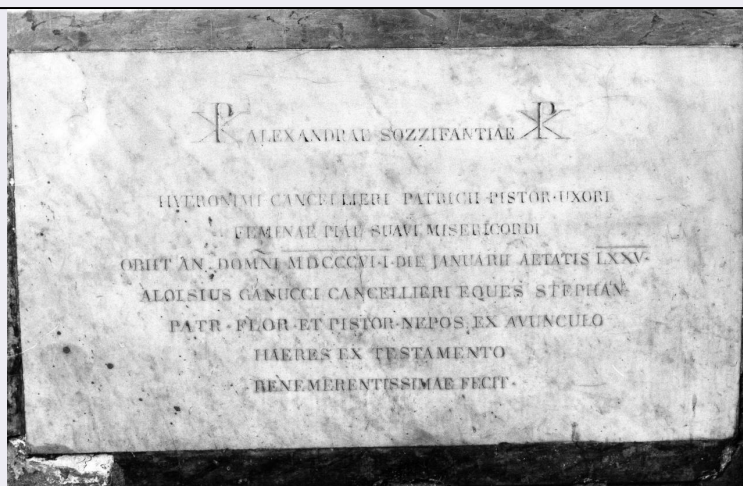 ☧ ALEXANDRAE SOZZIFANTIAE ☧
HYERONIMI CANCELLIERI PATRICII PISTOR·UXORI
FEMINAE PIAE SUAVI MISERICORDI
OBIIT AN. DOMNI MDCCCVI·I·DIE JANUARII AETATIS LXXV·
ALOISIUS GANUCCI CANCELLIERI EQUES STEPHAN·
PATR·FLOR·ET PISTOR·NEPOS EX AVUNCULO
HAERES EX TESTAMENTO
·BENEMERENTISSIMAE FECIT·